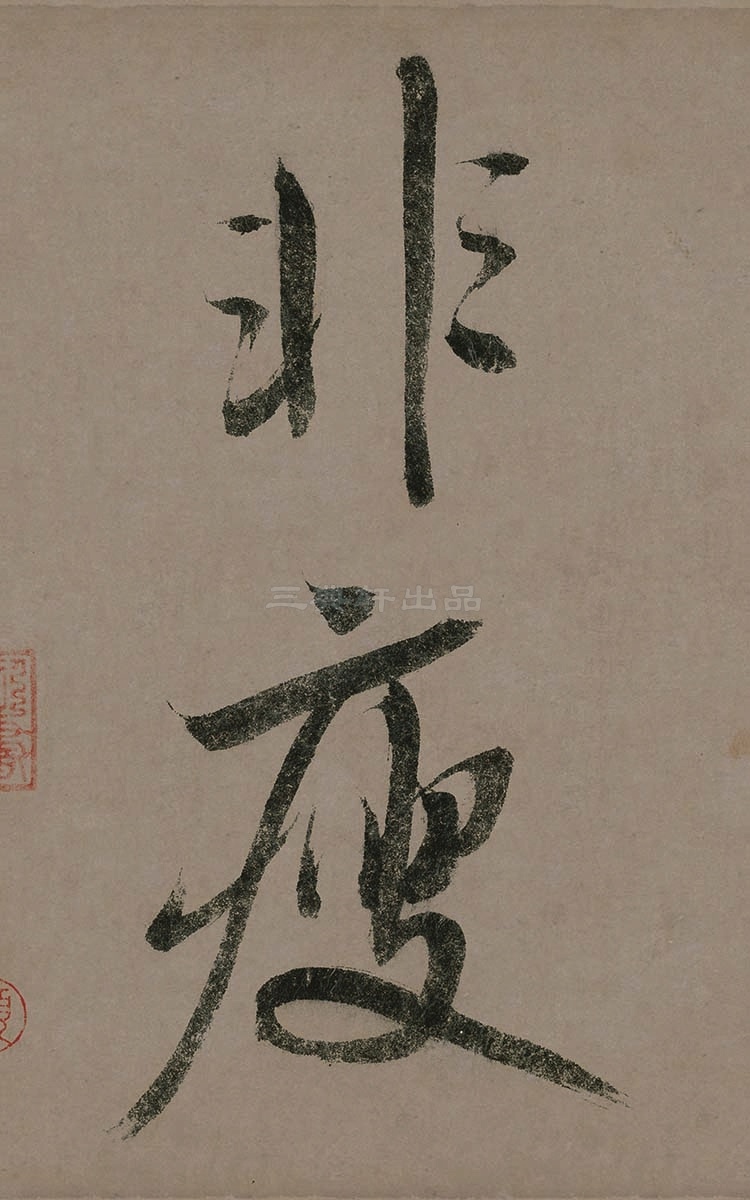 非瘦
三希轩出品